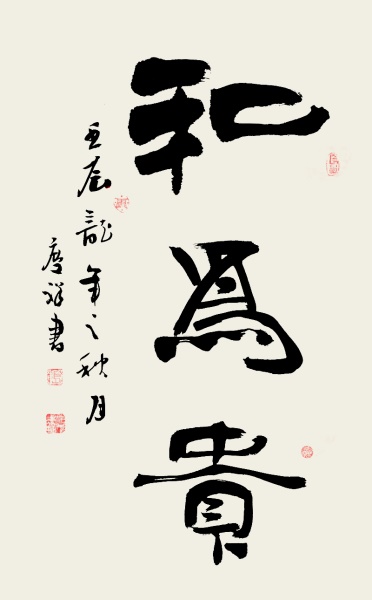 和為貴
壬辰龍年之秋月
慶祥書